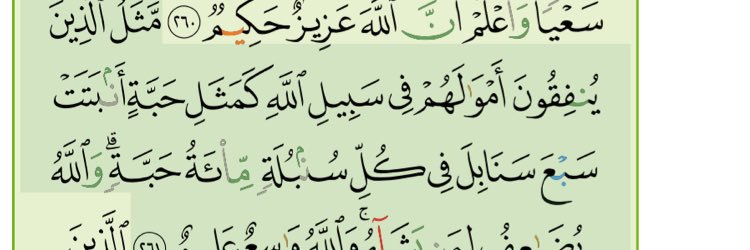 سَعْيًا وَٱعْلَمْ أَنَّ ٱللَّهَ عَزِيزٌ حَكِيمٌ ٢٦٠ مَّثَلُ ٱلَّذِينَ
يُنفِقُونَ أَمْوَٰلَهُمْ فِى سَبِيلِ ٱللَّهِ كَمَثَلِ حَبَّةٍ أَنۢبَتَتْ
سَبْعَ سَنَابِلَ فِى كُلِّ سُنۢبُلَةٍ مِّا۟ئَةُ حَبَّةٍ ۗ وَٱللَّهُ
يُضَٰعِفُ لِمَن يَشَآءُ ۚ وَٱللَّهُ وَٰسِعٌ عَلِيمٌ ٢٦١ ٱلَّذِينَ